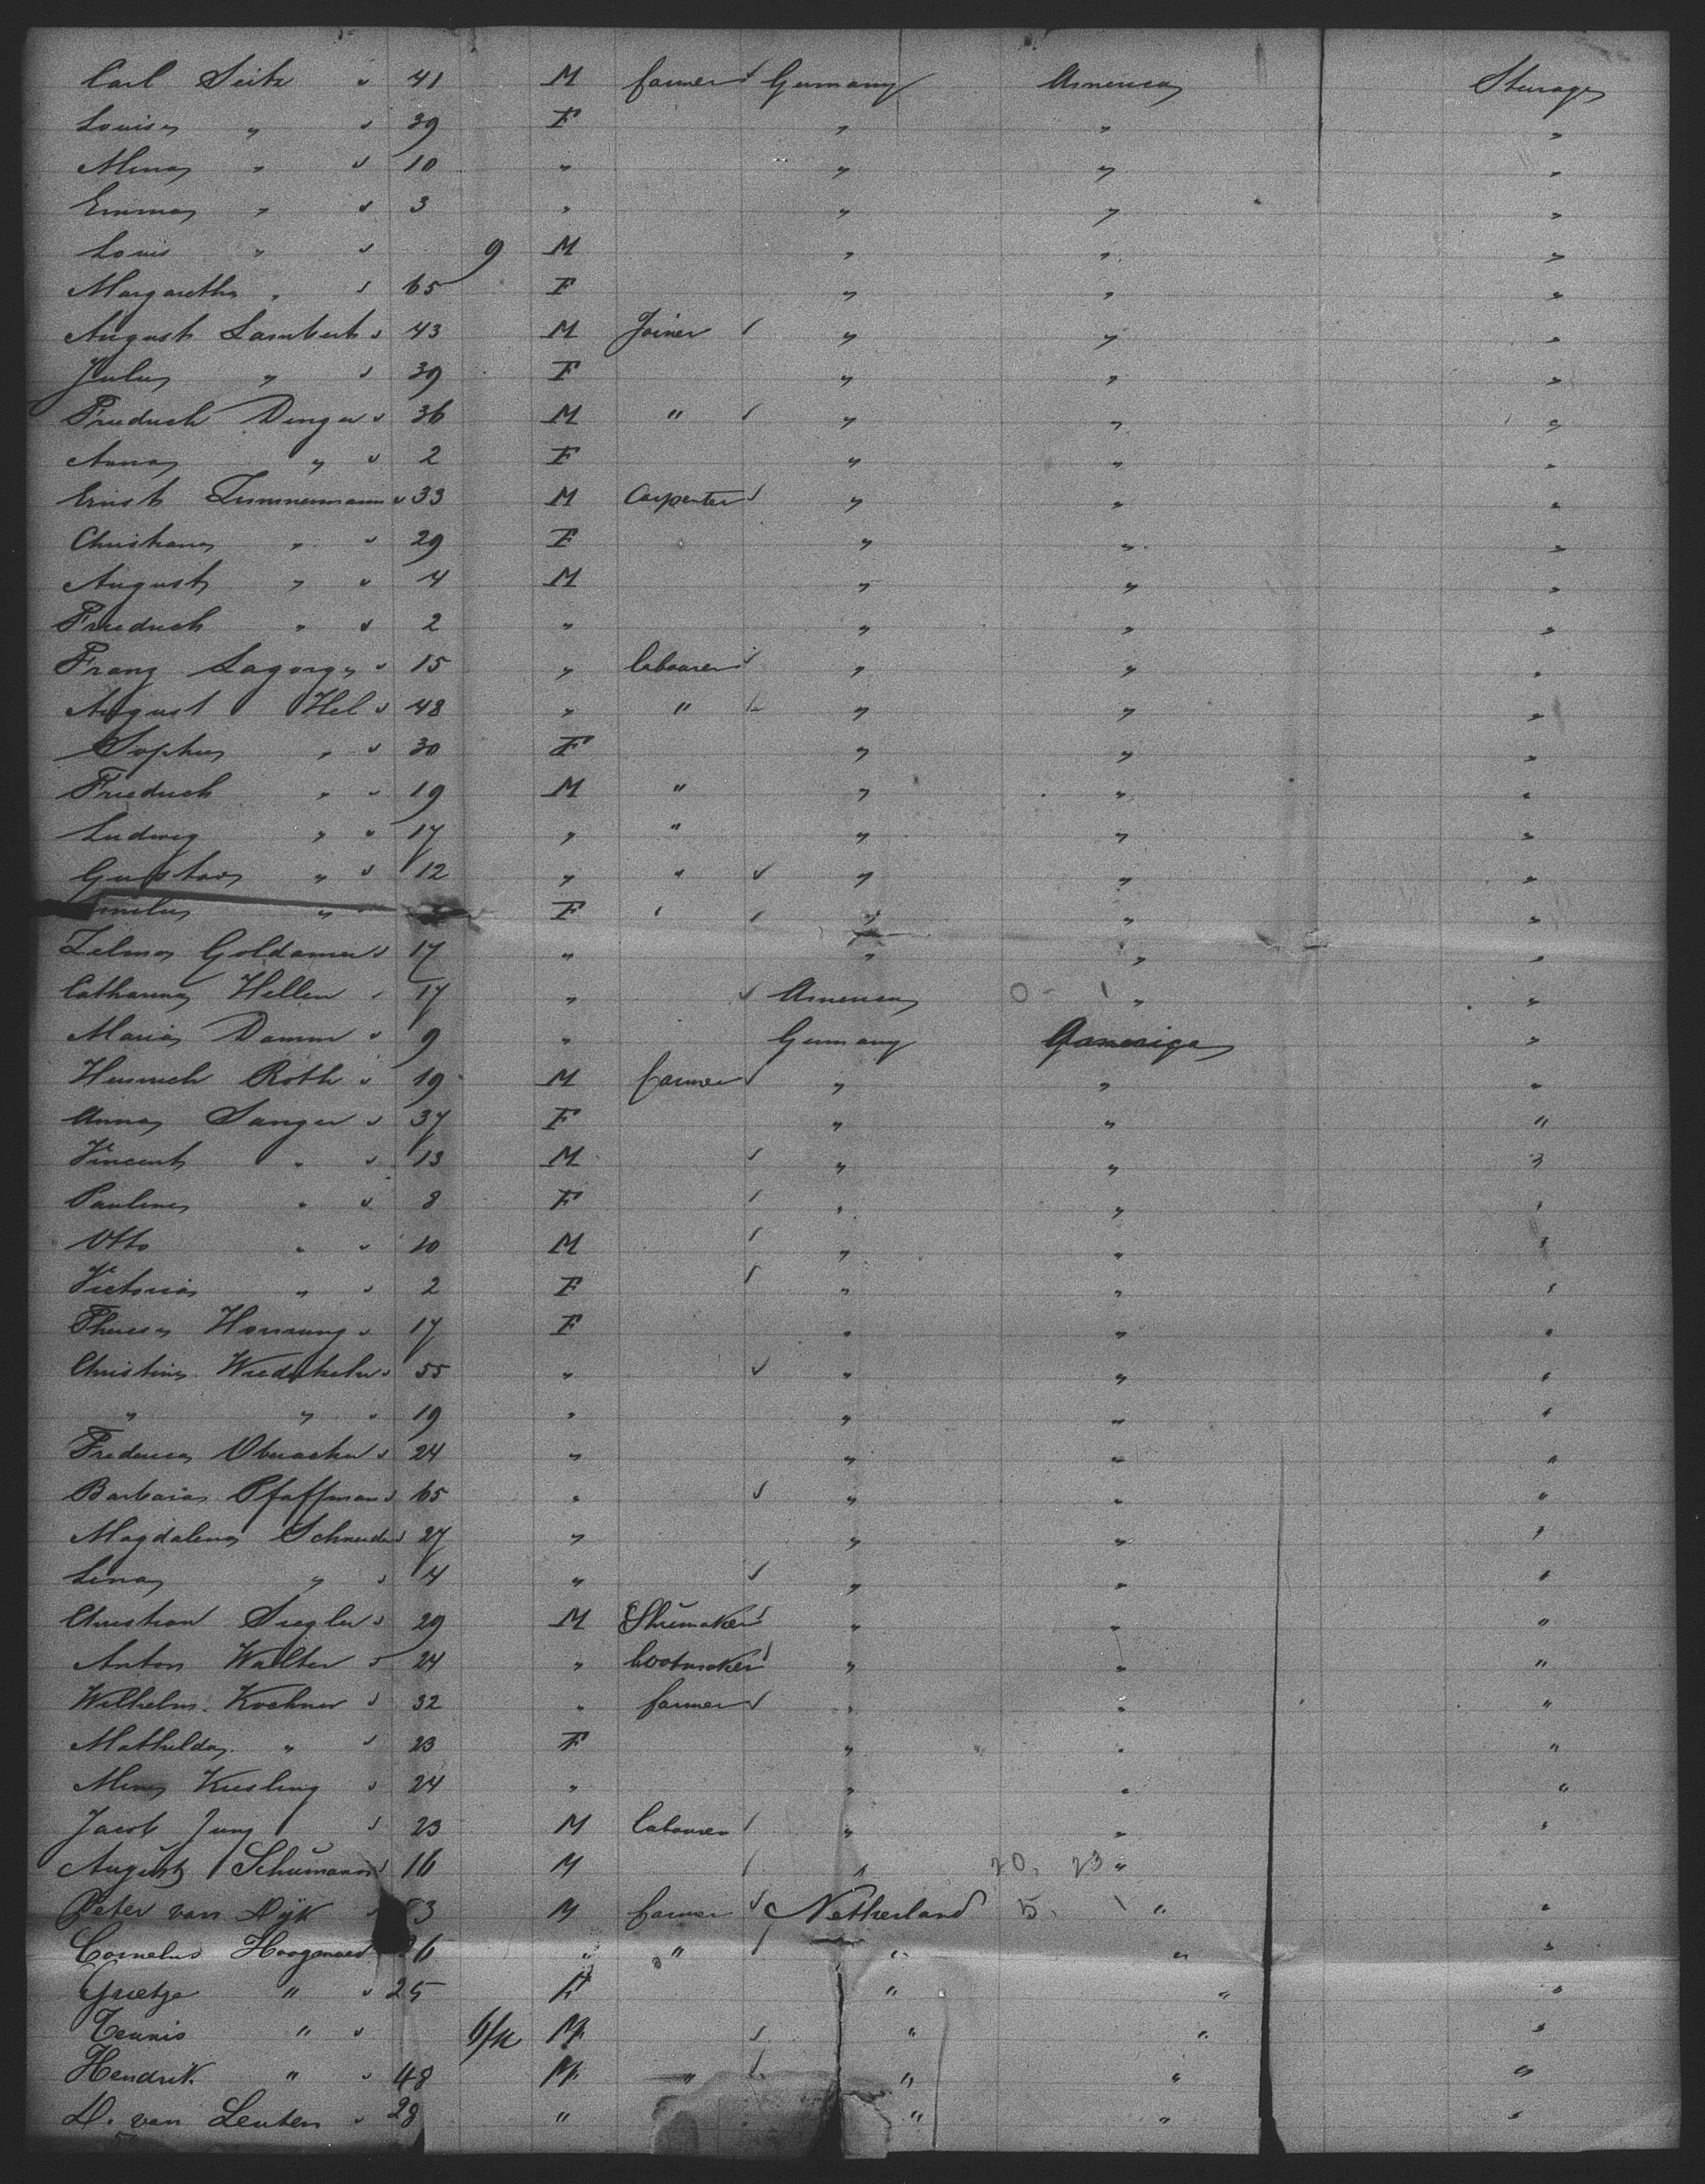 Carl Seitz " 41 M farmer Germany America Steerage
Louise " " 39 F " " "
Mina " " 10 " " " "
Emma " " 3 " " " "
Louis " " 9 M " " "
Margaretha " " 65 F " " "
August Lambert " 43 M Joiner " " "
Julia " " 39 F " " "
Friedrich Dinger " 36 M " " " "
Anna " " 2 F " " "
Ernst Zimmermann " 33 M Carpenter " " "
Christiana " " 29 F " " "
August " " 4 M " " "
Friedrich " " 2 " " " "
Franz " 15 " labourer " " "
August Hel " 48 " " " " "
Sophia " " 30 F " " "
Friedrich " " 19 M " " " "
Ludwig " " 17 " " " " "
Gustav " " 12 " " " " "
" " F " " " "
Selma Goldamer " 17 " " " "
Catharina Heller " 17 " America 0 - 1 " "
Maria Damm " 9 " Germany Gameriga "
Heinrich Roth " 19 M farmer " " "
Anna Sanger " 37 F " " "
Vincent " " 13 M " " "
Pauline " " 8 F " " "
Otto " " 10 M " " "
Victoria " " 2 F " " "
Theresa Hornung " 17 F " " "
Christina " 55 " " " "
" " " 19 " " " "
Frederica Oberacker " 24 " " " "
Barbara Pfaffmann " 65 " " " "
Magdalena Schneider " 27 " " " "
Lina " " 4 " " " "
Christian Siegler " 29 M Shumaker " " "
Anton Walter " 24 " bootmaker " " "
Wilhelm Kochner " 32 " farmer " " "
Mathilda " " 23 F " " "
Mina Kiesling " 24 " " " "
Jacob Jung " 23 M labourer " " "
August Schumann " 16 M " 20, 23 "
Peter van Dijk " 3 M farmer Netherland 5. 1 " "
Cornelus 26 " " " " "
Grietje " " 25 F " " "
Teunis " " M " " "
Hendrik " " 48 M " " " "
D. van Leuten " 28 " " " "